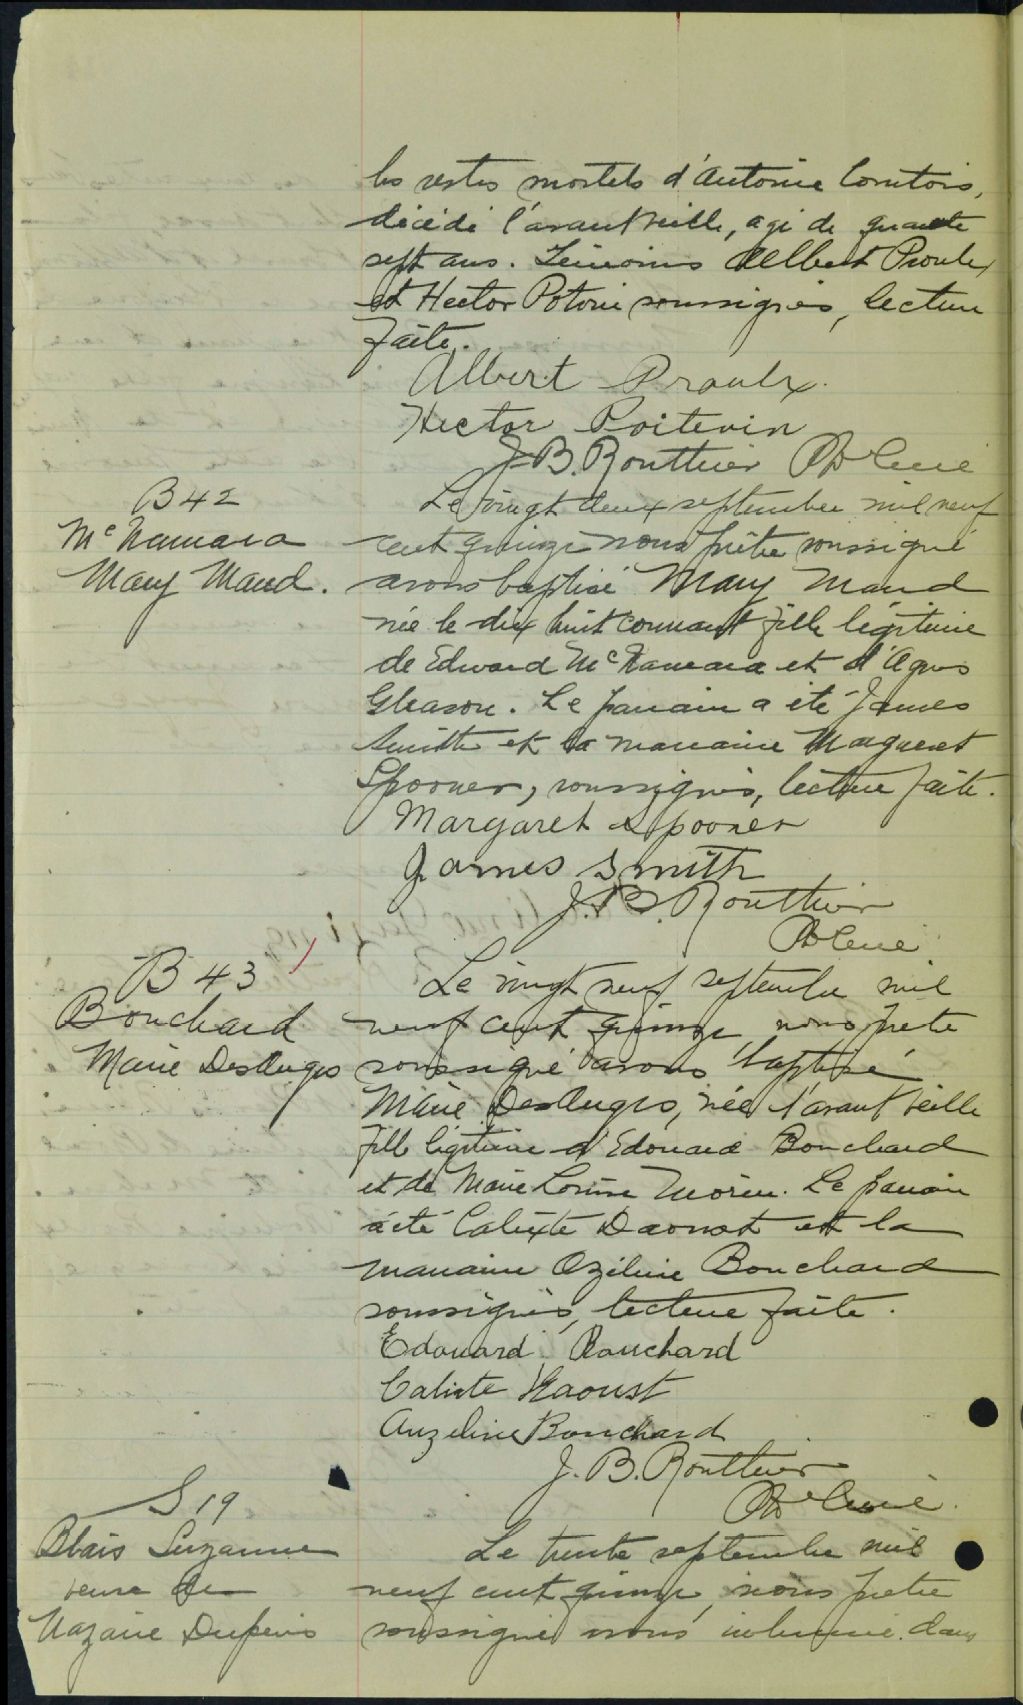 les restes mortels d'Antoine Comtois,
décédé l'avant veille, agé de quarante
sept ans. Témoins Albert Proulx
et Hector Potvin soussignés, lecture
faite.
Albert Proulx.
Hector Poitevin
J. B. Routhier Ptre Curé
B 42
McNamara
Mary Maud.
Le vingt deux septembre mil neuf
cent quinze nous prêtre soussigné
avons baptisé Mary Maud
née le dix huit courant fille légitime
de Edward McNamara et d'Agnes
Gleason. Le parrain a été James
Smith et la marraine Margueret
Spooner, soussignés, lecture faite.
Margaret Spooner
James Smith
J. B. Routhier
Ptre Curé
B 43
Bouchard
Marie DesAnges
Le vingt neuf septembre mil
neuf cent quinze, nous prêtre
soussigné avons baptisé
Marie DesAnges, née l'avant veille
fille légitime d'Edouard Bouchard
et de Marie Louise Morin. Le parrain
a été Calixte Daoust et la
marraine Oziline Bouchard
soussignés, lecture faite.
Edouard Bouchard
Calixte Daoust
Auzeline Bouchard
J. B. Routhier
Ptre Curé.
S 19
Blais Suzanne
veuve de
Nazaire Dupuis
Le trente septembre mil
neuf cent quinze, nous prêtre
soussigné avons inhumé dans